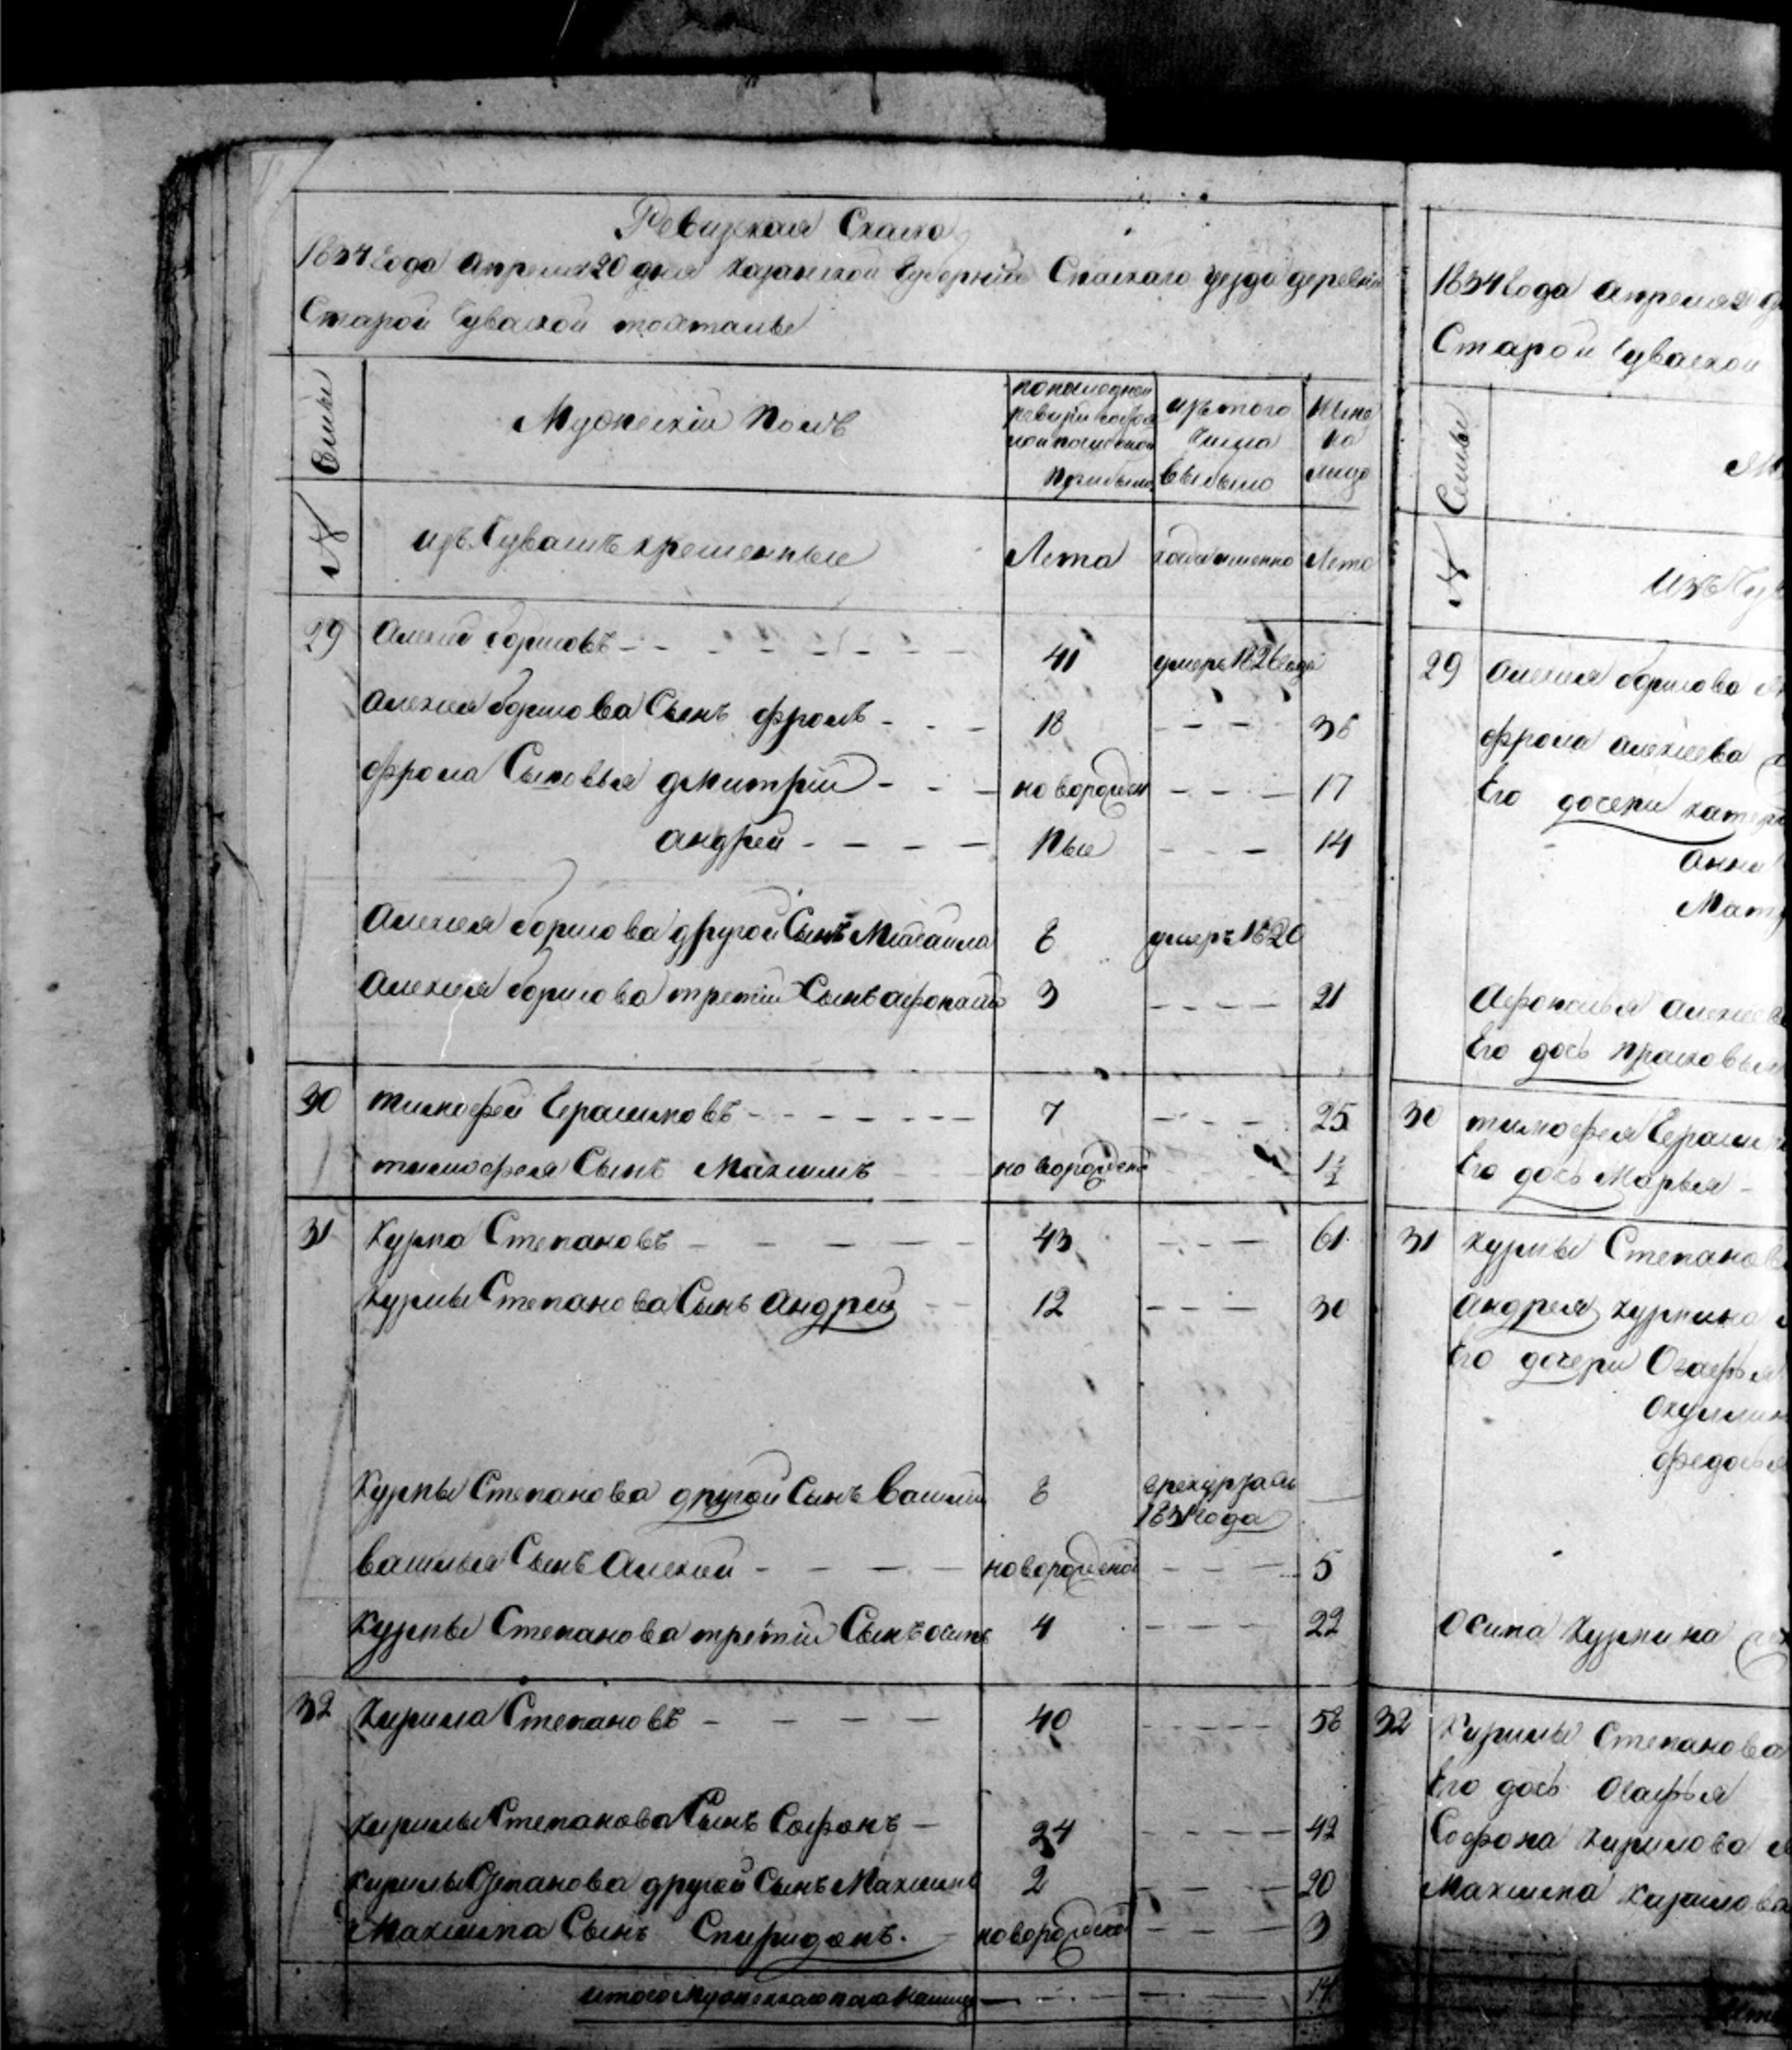 Ревизкая Скаска
1834 Года Апреля 20 дня Казанской Губернии Спаскаго уезда деревни
Старой Чуваской
Семьи
Мужеский Полъ
по последней
ревизии
прибыло
изъ того
числа
выбыло
Ныне
на
лицо
№
изъ Чувашъ крещенные
Лета
Лета
29 Алексей борисовъ - - - 41 умеръ 1826 года
Алексея борисова Сынъ фролъ - - - 18 - - - 36
фрола Сыновья дмитрий - - - новорожден - - - 17
андрей - - - - ные - - - 14
Алексея борисова другой Сынъ 8 умеръ 1820
Алексея борисова третий Сынъ афонасей 3 - - - - 21
30 тимофей Ерасимовъ - - - - - - - 7 - - - - 25
тимофея Сынъ Максимъ новорожден 1½
31 Курка Степановъ - - - - - - 43 - - - 61
Степанова Сынъ андрей - - 12 - - - 30
Степанова другой Сынъ василий 8
1831 года
василья Сынъ Алексей - - - - новорожденой - - - 5
Степанова третий Сынъ осипъ 4 - - - - 22
32 Кирила Степановъ - - - - 40 - - - - 58
Кирилы Степанова Сынъ Софонъ - 24 - - - - 42
Кирилы Степанова другой Сынъ Максимъ 2 - - - 20
Максима Сынъ Спиридонъ. новорожденой - - - 3
итого Мужескаго пола налицо - - - 14
1834 года Апреля 20
Старой Чуваской
Семьи
№
Изъ
29 Алексея борисова
фрола алексеева
Его дочери
Анна
Афонасья алексеева
Его дочь прасковья
30 тимофея
Его дочь Марья -
31 Степанова
Андрея
Его дочери Огафья
федосья
Осипа
32 Кирилы Степанова
Его дочь Огафья
Софона кирилова
Максима кирилова